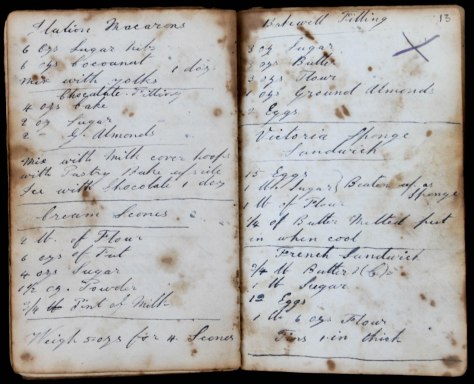 Station Macarons
6 ozs Sugar Nibs
6 ozs Cocoanut 1 doz
Mix with yolks
Chocolate Filling
4 ozs Cake
2 oz Sugar
2 " G. Almonds
Mix with Milk cover hoops
with Pastry Bake upside
Ice with Chocolate 1 doz
Cream Scones
2 lb. of Flour
6 ozs of Fat
4 ozs Sugar
1½ oz. Powder
3/4 Pint of Milk
Weigh 5 ozs for 4 Scones
13
Bakewell Filling
3 oz Sugar
ozs Butter
3 ozs Flour
1 ozs Ground Almonds
2 Eggs
Victoria Sponge
Sandwich
15 Eggs
1 lb Sugar } Beaten up as Sponge
1 lb of Flour
1/4 of Butter Melted put
in when cool
French Sandwich
3/4 lb Butter
1 lb Sugar
12 Eggs
1 lb 6 ozs Flour
Tins 1 in thick